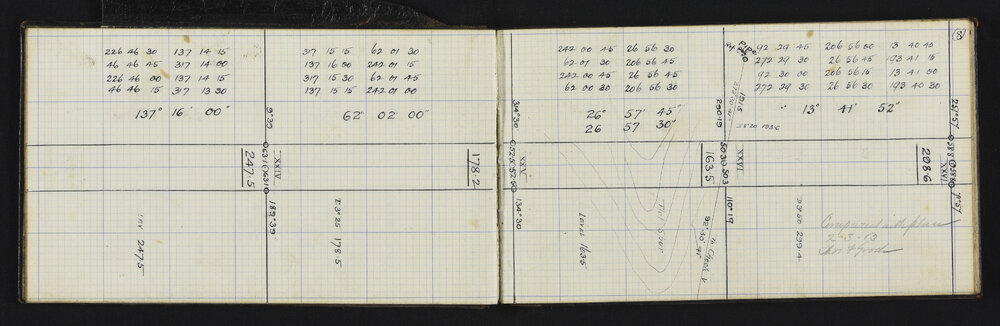 226 46 30 137 14 15
46 46 45 317 14 00
226 46 00 137 14 15
46 46 15 317 13 30
137° 16' 00"
317 15 15 62 01 30
137 16 00 242 01 15
317 15 30 62 01 45
137 15 15 242 01 00
62° 02' 00"
9°39
XXIV
247.5
189°39
Lev 247.5
178.2
E 3°25 178.5
(8)
242 00 45 26 56 30
62 01 30 206 56 45
242 00 45 26 56 45
62 00 30 206 56 30
26° 57' 45"
26 57 30"
314°30
XXV
134°30
Level 163.5
Flat spur
92 29 45 206 56 00 13 40 45
272 29 30 26 56 45 193 41 15
92 30 00 206 56 15 13 41 00
272 29 30 26 56 30 193 40 30
" 13° 41' 52"
290.19
Pipe
1915
163.5
XXVI
110°19
92° 30' 45"
to Check
208.6
XXVI
251°57
71°57
Compared with plan
2-3-13